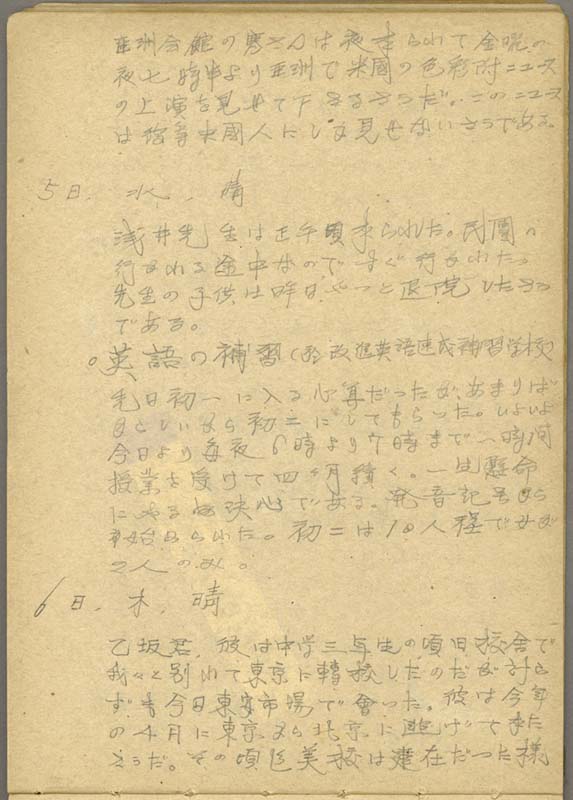 亜洲会館の
さんは夜来られて金曜の
夜七時半より亜洲で米國の色彩附ニュース
の上演を見せて下さるさうだ。このニュース
は
中國人にしか見せないさうである。
5日、水、晴
浅井先生は正午頃来られた。民團へ
行かれる途中なので すぐ行かれた。
先生の子供は昨日やっと退院したさう
である。
○英語の補習(於改進英語速成補習学校)
初一に入る心算だったが、あまりば
からしいから初二にしてもらった。いよいよ
今日より毎夜6時より7時まで一時間
授業を受けて四ヶ月続く。一生懸命
にやる決心である。発音記号から
始められた。初二は18人程で女が
2人のみ。
6日、木、晴
乙坂君、彼は中学三年生の頃旧校舎で
我々と別れて東京に轉校したのだが計ら
ずも今日東安市場で會った。彼は今年
の4月に東京から北京に逃げて来た
さうだ。その頃
美校は健在だった様